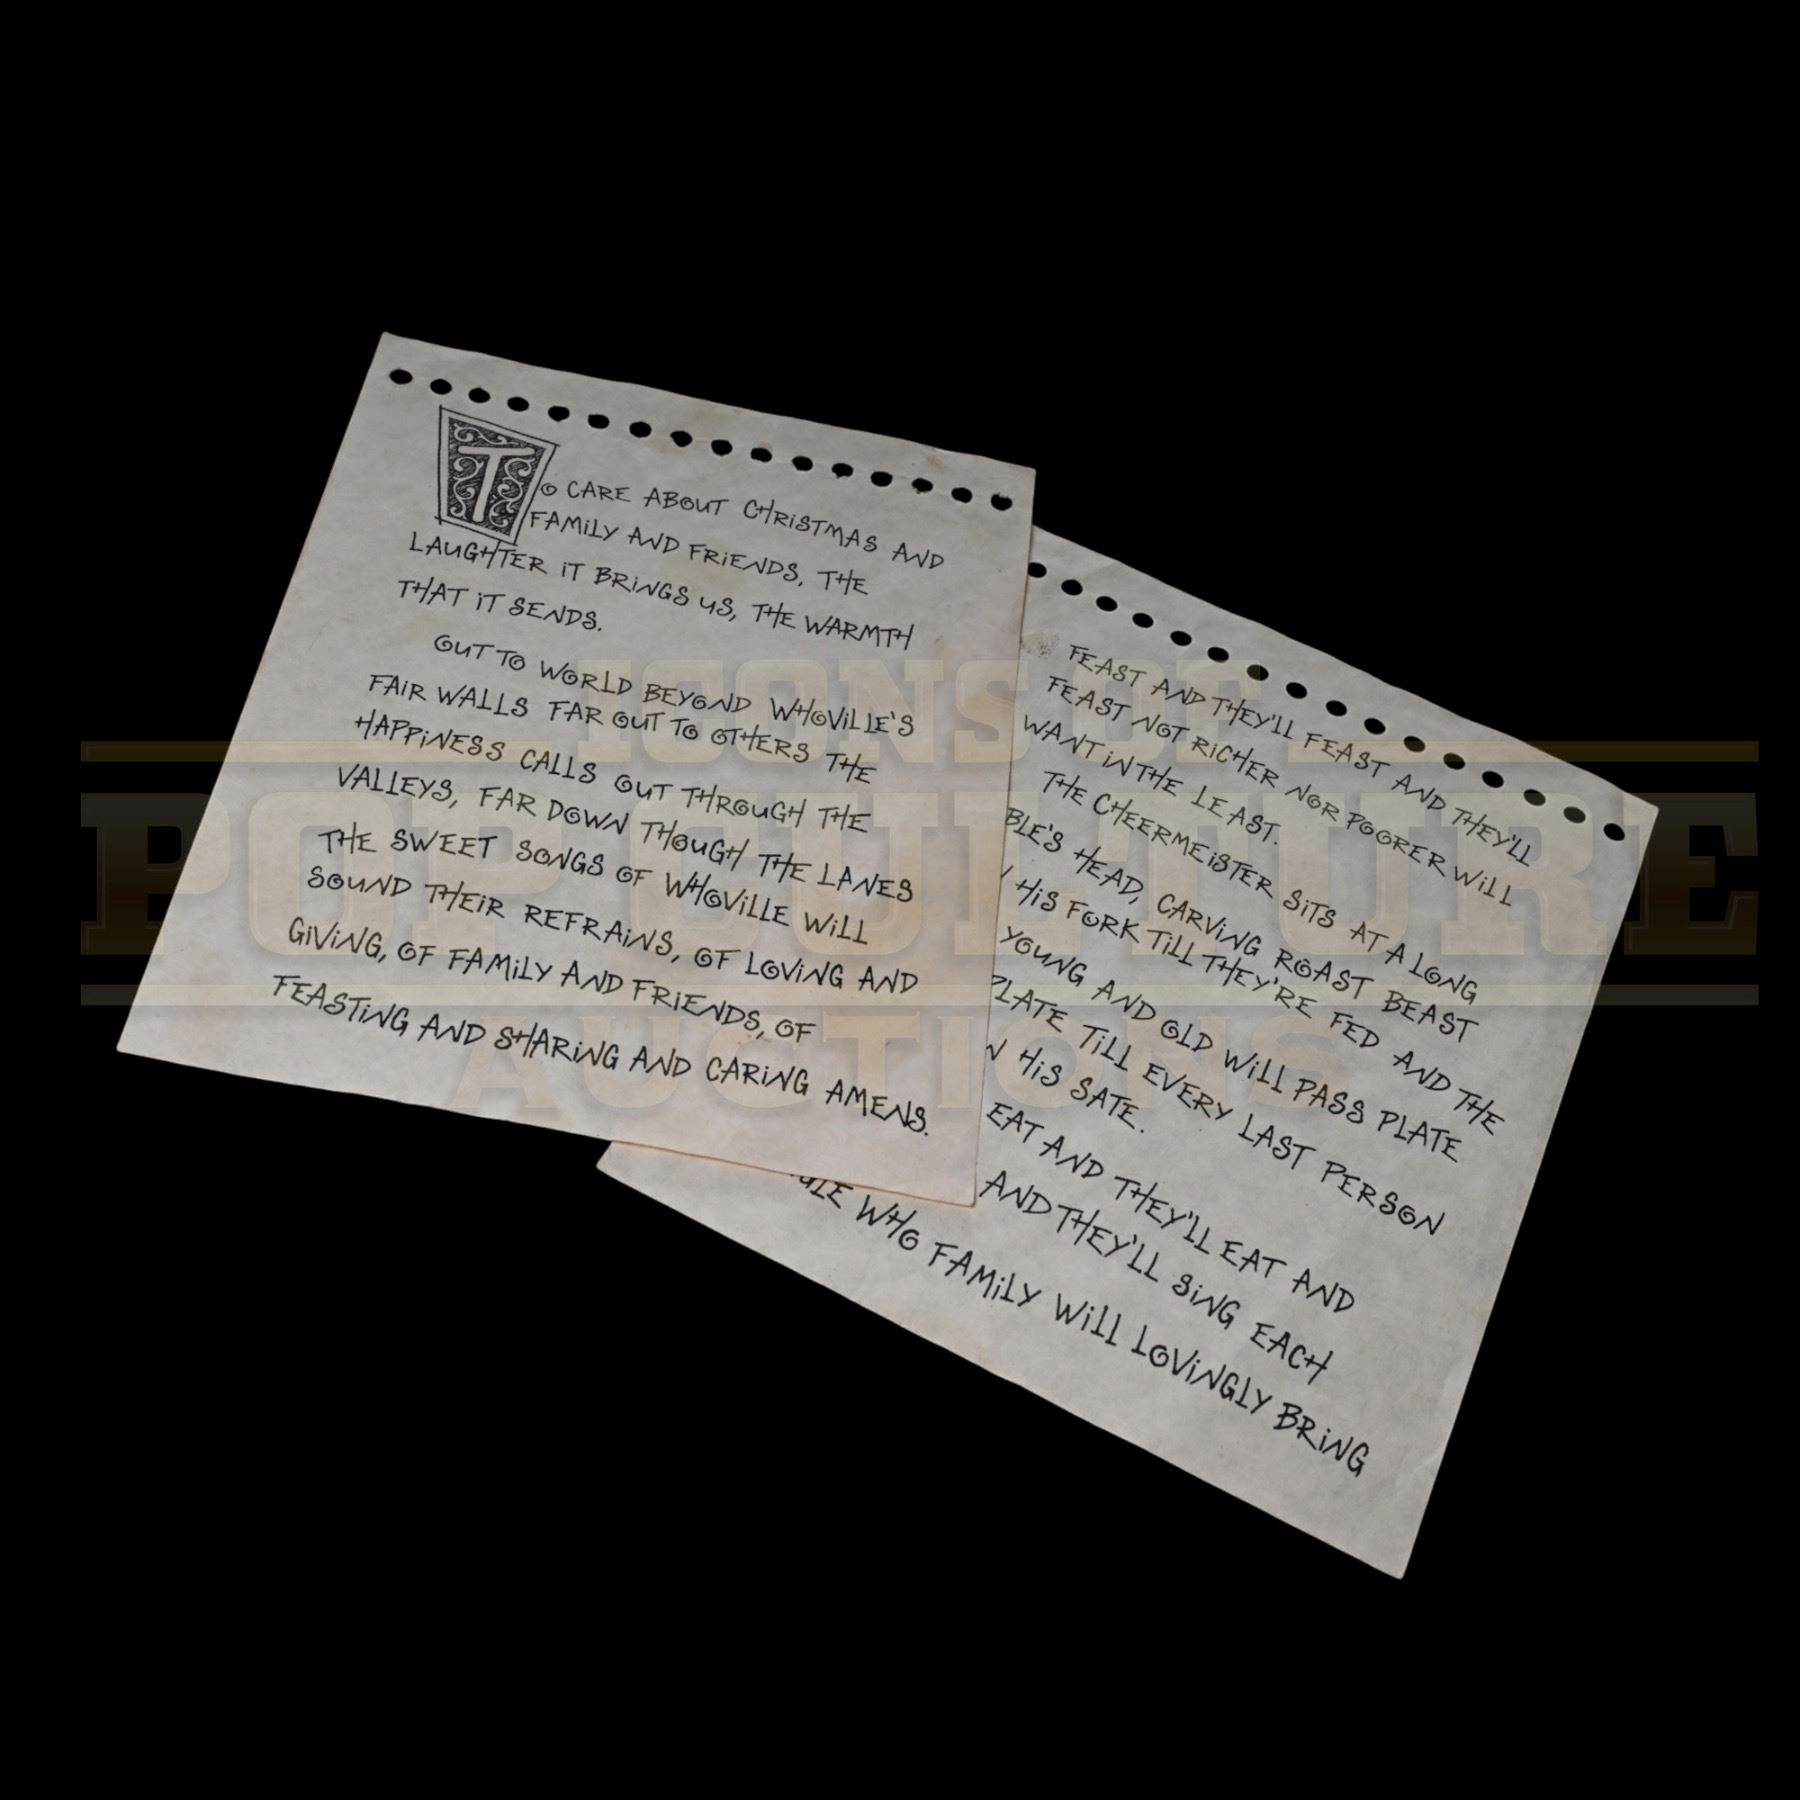 TO CARE ABOUT CHRISTMAS AND
FAMILY AND FRIENDS, THE
LAUGHTER IT BRINGS US, THE WARMTH
THAT IT SENDS.
OUT TO WORLD BEYOND WHOVILLE'S
FAIR WALLS FAR OUT TO OTHERS THE
HAPPINESS CALLS OUT THROUGH THE
VALLEYS, FAR DOWN THOUGH THE LANES
THE SWEET SONGS OF WHOVILLE WILL
SOUND THEIR REFRAINS, OF LOVING AND
GIVING, OF FAMILY AND FRIENDS, OF
FEASTING AND SHARING AND CARING AMENS.
FEAST AND THEY'LL FEAST AND THEY'LL
FEAST NOT RICHER NOR POORER WILL
WANT IN THE LEAST.
THE CHEERMEISTER SITS AT A LONG
BLE'S HEAD, CARVING ROAST BEAST
HIS FORK TILL THEY'RE FED AND THE
YOUNG AND OLD WILL PASS PLATE
PLATE TILL EVERY LAST PERSON
HIS SATE.
EAT AND THEY'LL EAT AND
AND THEY'LL SING EACH
WHO FAMILY WILL LOVINGLY BRING
ICONS OF
POP CULTURE
AUCTIONS